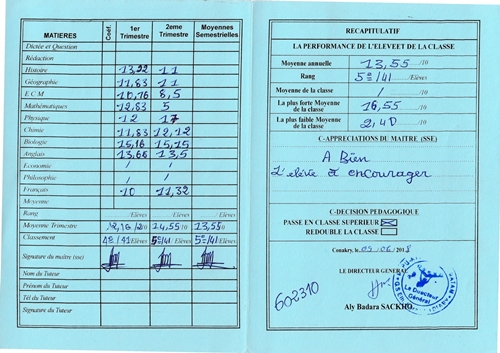 MATIERES Coef. 1er Trimestre 2eme Trimestre Moyennes Semestrielles
Dictée et Question
Rédaction
Histoire 13,22 11
Géographie 11,83 11
E C M 10,76 8,5
Mathématiques 12,83 5
Physique 12 17
Chimie 11,83 12,12
Biologie 15,16 15,15
Anglais 13,66 13,5
Economie / /
Philosophie / /
Français 10 11,32
Moyenne
Rang /Elèves /Elèves /Elèves
Moyenne Trimestre 12,16 /10 14,55 /10 13,55 /10
Classement /41 /Elèves 5e/41 /Elèves 5e/41 /Elèves
Signature du maître (sse)
Nom du Tuteur
Prénom du Tuteur
Tél du Tuteur
Signature du Tuteur
RECAPITULATIF
LA PERFORMANCE DE L'ELEVE ET DE LA CLASSE
Moyenne annuelle 13,55 /10
Rang 5e/41 /Elèves
Moyenne de la classe / /10
La plus forte Moyenne de la classe 16,55 /10
La plus faible Moyenne de la classe 2,40 /10
C-APPRECIATIONS DU MAITRE (SSE)
A Bien
L'élève à encourager
C-DECISION PEDAGOGIQUE
PASSE EN CLASSE SUPERIEUR
REDOUBLE LA CLASSE
Conakry, le 09/06/2018
LE DIRECTEUR GENERAL
Le Directeur
Général
602310
Aly Badara SACKHO